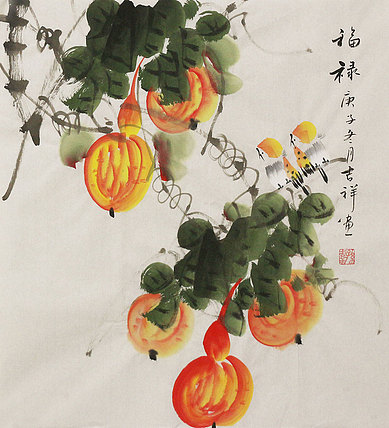 福禄
庚子冬月吉祥画